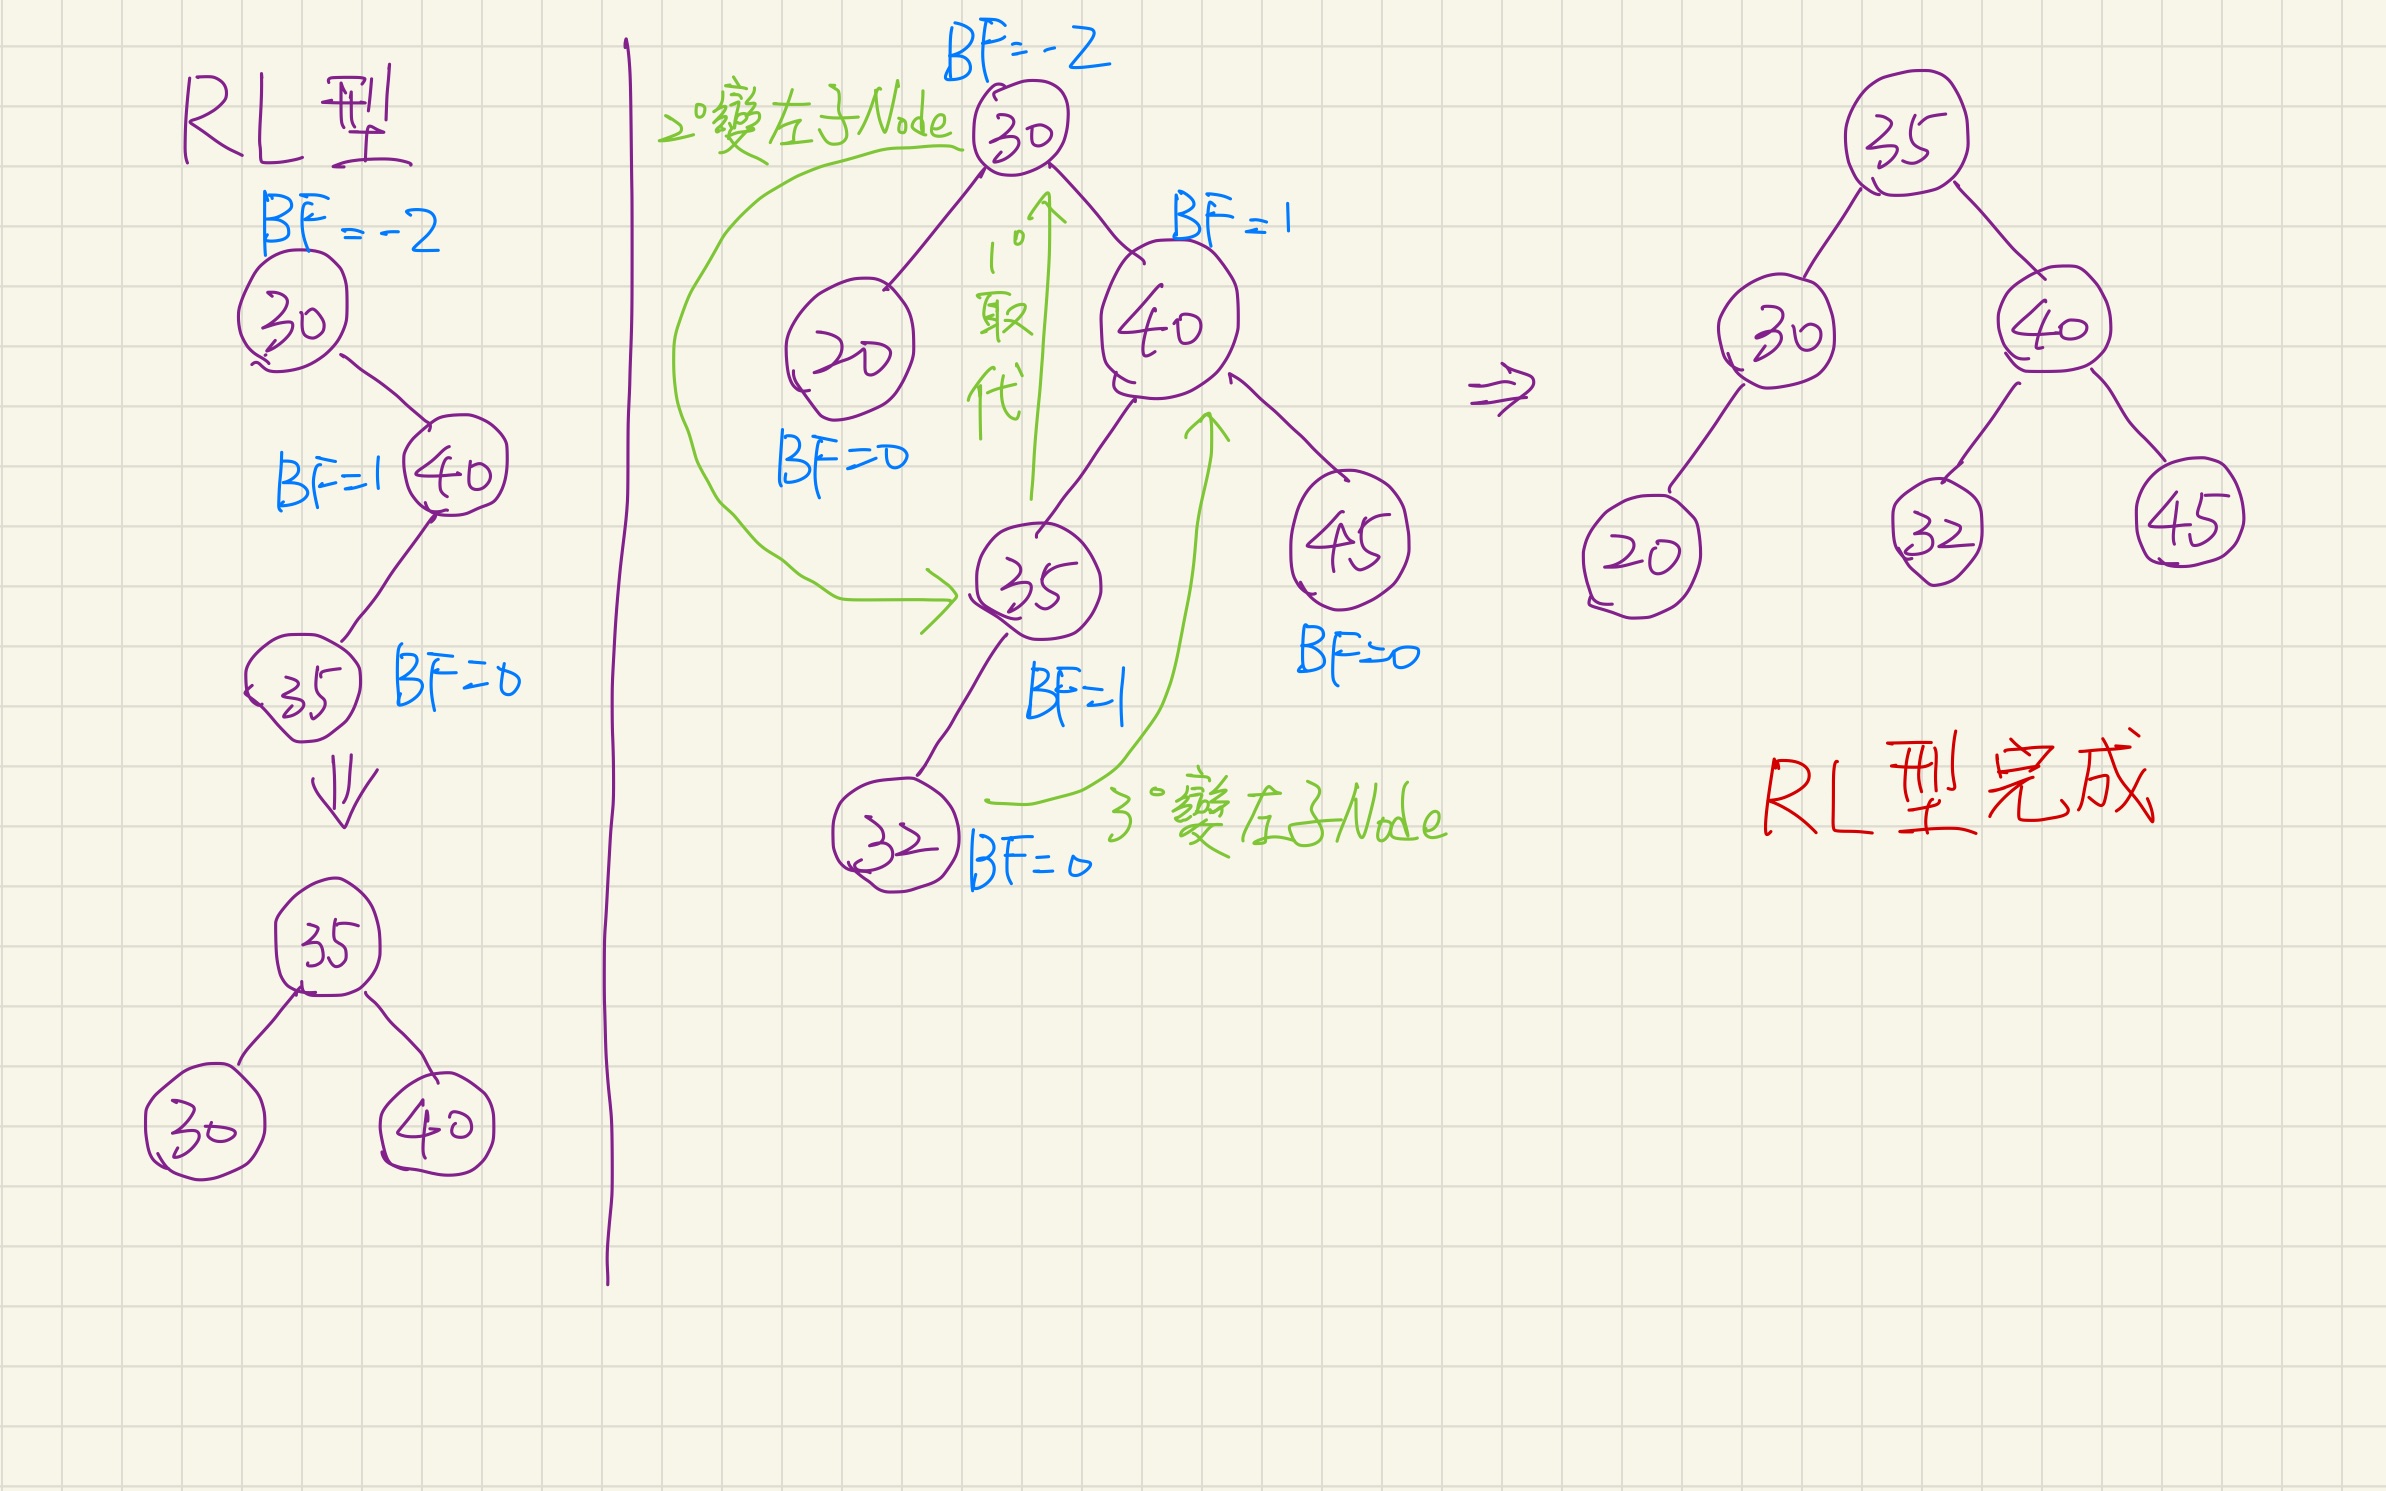 RL型
BF=-2
30
BF=1
40
35
BF=0
35
30
40
BF=-2
2°變左子Node
30
BF=1
1°
取
代
20
40
BF=0
35
45
BF=1
BF=0
32
BF=0
3°變左子Node
⇒
35
30
40
20
32
45
RL型完成